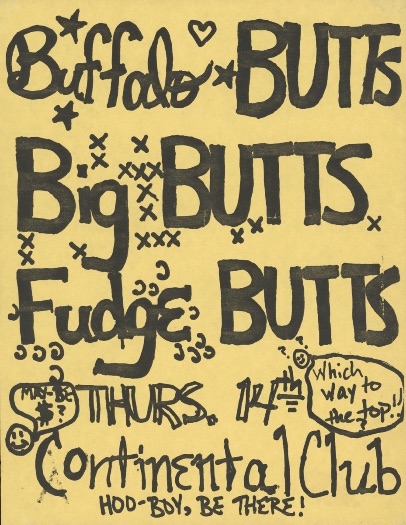 Buffalo BUTTS
Big BUTTS
Fudge BUTTS
MAY-BE
$ ?
THURS. 14th
Which
way to
the top!!
Continental Club
HOO-BOY, BE THERE!